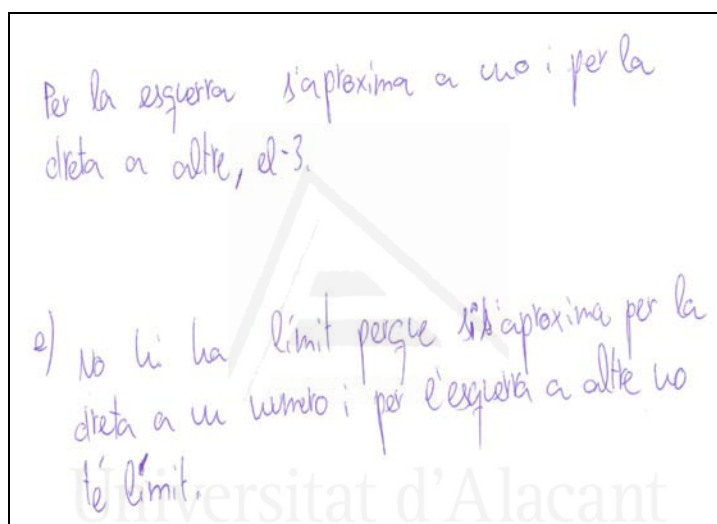 Per la esquerra s'aproxima a uno i per la
dreta a altre, el -3.
e) No hi ha límit perque si s'aproxima per la
dreta a un numero i per l'esquerra a altre no
té límit.
Universitat d'Alacant